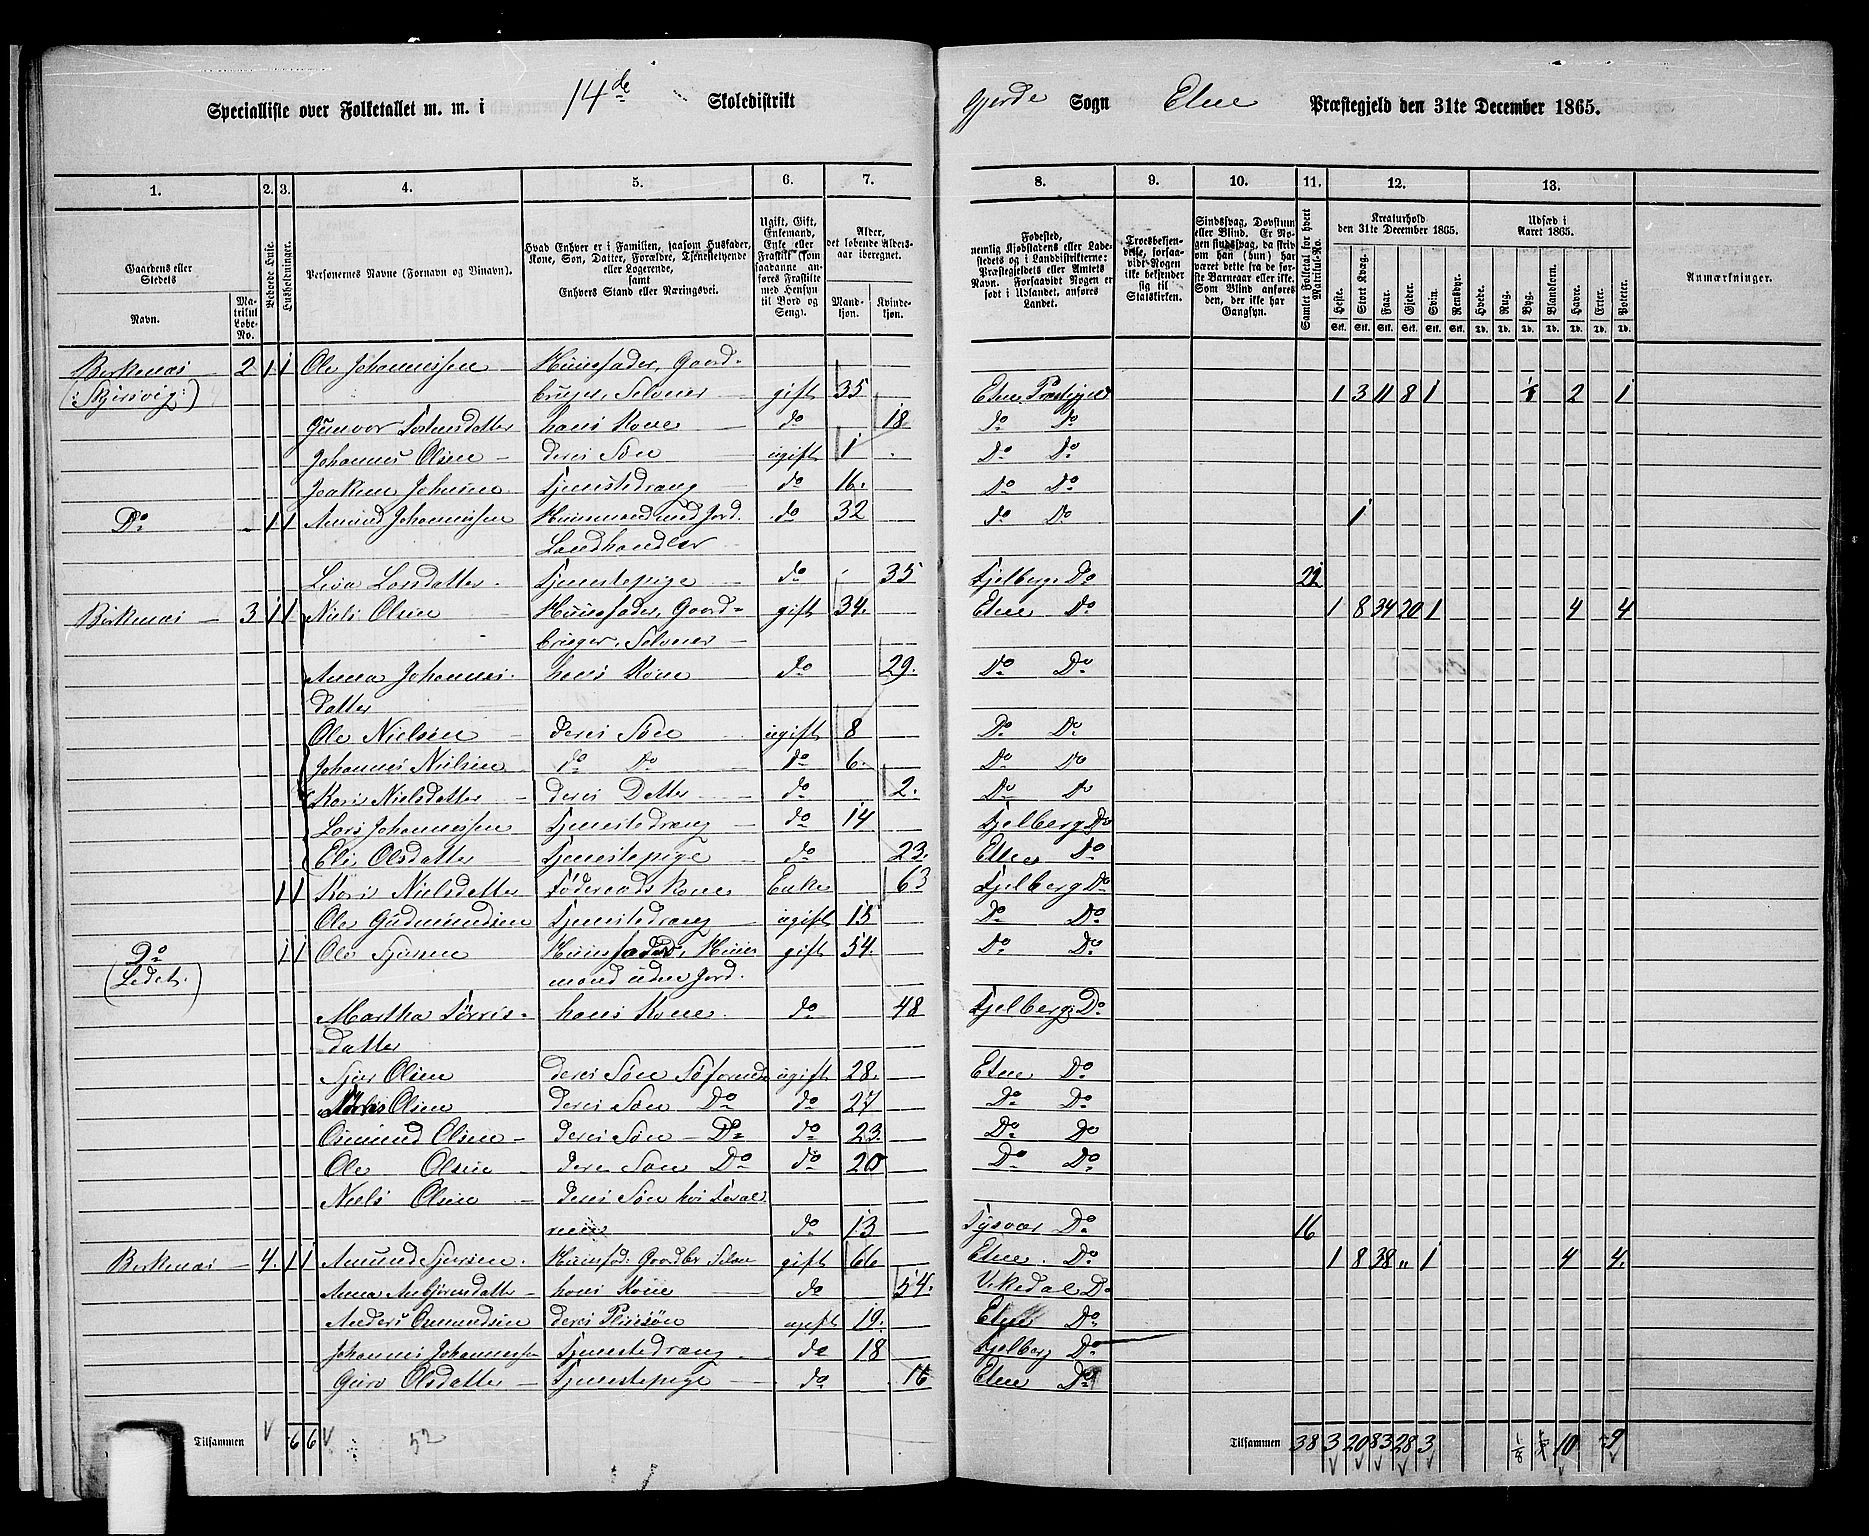 Specialliste over Folketallet m. m. i 14de Skoledistrikt Gjerde Sogn Etne Præstegjeld den 31te December 1865.
1. 2. 3. 4. 5. 6. 7. 8. 9. 10. 11. 12. 13.
Gaardens eller Stedets Navn.
Matrikul Løbe-No.
Beboede Huse.
Husholdninger.
Personernes Navne (Fornavn og Vinavn).
Hvad Enhver er i Familien, saasom Husfader, Kone, Søn, Datter, Forældre, Tjenestetyende eller Logerende, samt Enhvers Stand eller Næringsvei.
Ugift, Gift, Enkemand, Enke eller Fraskilt (som saadanne anføres Fraskilte med Hensyn til Bord og Seng).
Alder, det løbende Alders-aar iberegnet.
Mandkjøn. Kvindekjøn.
Fødested, nemlig Kjøbstadens eller Ladestedets og i Landdistrikterne: Præstegjeldets eller Amtets Navn. Forsaavidt Nogen er født i Udlandet, anføres Landet.
Troesbekjendelse, forsaavidt Nogen ikke bekjender sig til Statskirken.
Sindssvag, Døvstum eller Blind. Er Nogen sindssvag, da skriv om han (hun) har været dette fra de første Barneaar eller ikke. Som Blind anføres den, der ikke har Gangsyn.
Samlet Folketal for hvert Matrikul-No.
Kreaturhold den 31te December 1865.
Heste. Stort Kvæg. Faar. Gjeder. Svin. Rensdyr.
Udsæd i Aaret 1865.
Hvede. Rug. Byg. Blandkorn. Havre. Erter. Poteter.
Anmærkninger.
Birkenæs 2 1 1 Ole Johannessen Huusfader, Gaard-
(:Skjersvig:) bruger, Selveier gift 35 Etne Præstegjeld 1 3 11 8 1 2 1
Gunvor hans Kone do 18 Do Do
Johannes Olsen deres Søn ugift 1 Do Do
Joakim Johnsen Tjenestedreng do 16. Do Do
Do 1 1 Amund Johannessen Huusmand med Jord. do 32 Do Do 1
Landhandler
Liva Larsdatter Tjenestepige do 35 Fjelberg Do 22
Birkenæs 3 1 1 Niels Olsen Huusfader, Gaard- gift 34. Etne Do 1 8 34 20 1 4 4
bruger, Selveier
Anna Johannes- hans Kone do 29. Do Do
datter
Ole Nielsen deres Søn ugift 8 Do Do
Johannes Nielsen do Do do 6. Do Do
Kari Nielsdatter deres Datter do 2. Do Do
Lars Johannessen Tjenestedreng do 14 Fjelberg Do
Eli Olsdatter Tjenestepige do 23. Etne Do
1 1 Kari Nielsdatter Føderaads Kone Enke 63 Fjelberg Do
Ole Gudmundsen Tjenestedreng ugift 15 Do Do
Do 1 1 Ole Sjursen Huusfader, Huus- gift 54. Do Do
(Ledet.) mand uden Jord.
Martha Tørris- hans Kone do 48 Fjelberg Do
datter
Sjur Olsen deres Søn Søfarende ugift 28. Etne Do
Olsen deres Søn Do do 27 Do Do
Osmund Olsen deres Søn Do do 23. Do Do
Ole Olsen deres Søn Do do 20 Do Do
Niels Olsen deres Søn hos Foræl
drene do 13 Tysvær Do 16
Birkenæs 4. 1 1 Amund Sjursen. Huusfad. Gaardbr Selvei gift 66. Etne Do 1 8 38 " 1 4 4.
Anna Anbjørnsdatter hans Kone do 54. Vikedal Do
Anders Osmundsen deres Pleiesøn ugift 19. Etne Do
Johannes Johannessen Tjenestedreng do 18 Fjelberg Do
Guro Olsdatter Tjenestepige do 16 Etne Do
Tilsammen 6 6 52 Tilsammen 38 3 20 83 28 3 1/8 10 9